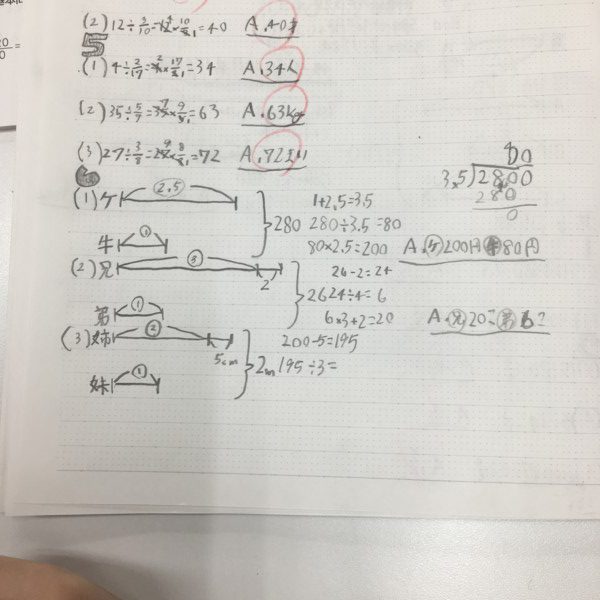 (2) 12÷3/10=12×10/3=40 A.40才
5
(1) 4÷2/17=4×17/2=34 A.34人
(2) 35÷5/7=35×9/5=63 A.63kg
(3) 27÷3/8=27×8/3=72 A.72
6
(1) ケ 2.5 1+2.5=3.5
280 280÷3.5=80
牛 ① 80×2.5=200 A.ケ200円 牛80円
80
3.5)2800
280
0
(2) 兄 ③ 2 26-2=24
26 24÷4=6
弟 ① 6×3+2=20 A.兄20 弟6
(3) 姉 ② 5cm 200-5=195
2m 195÷3=
妹 ①